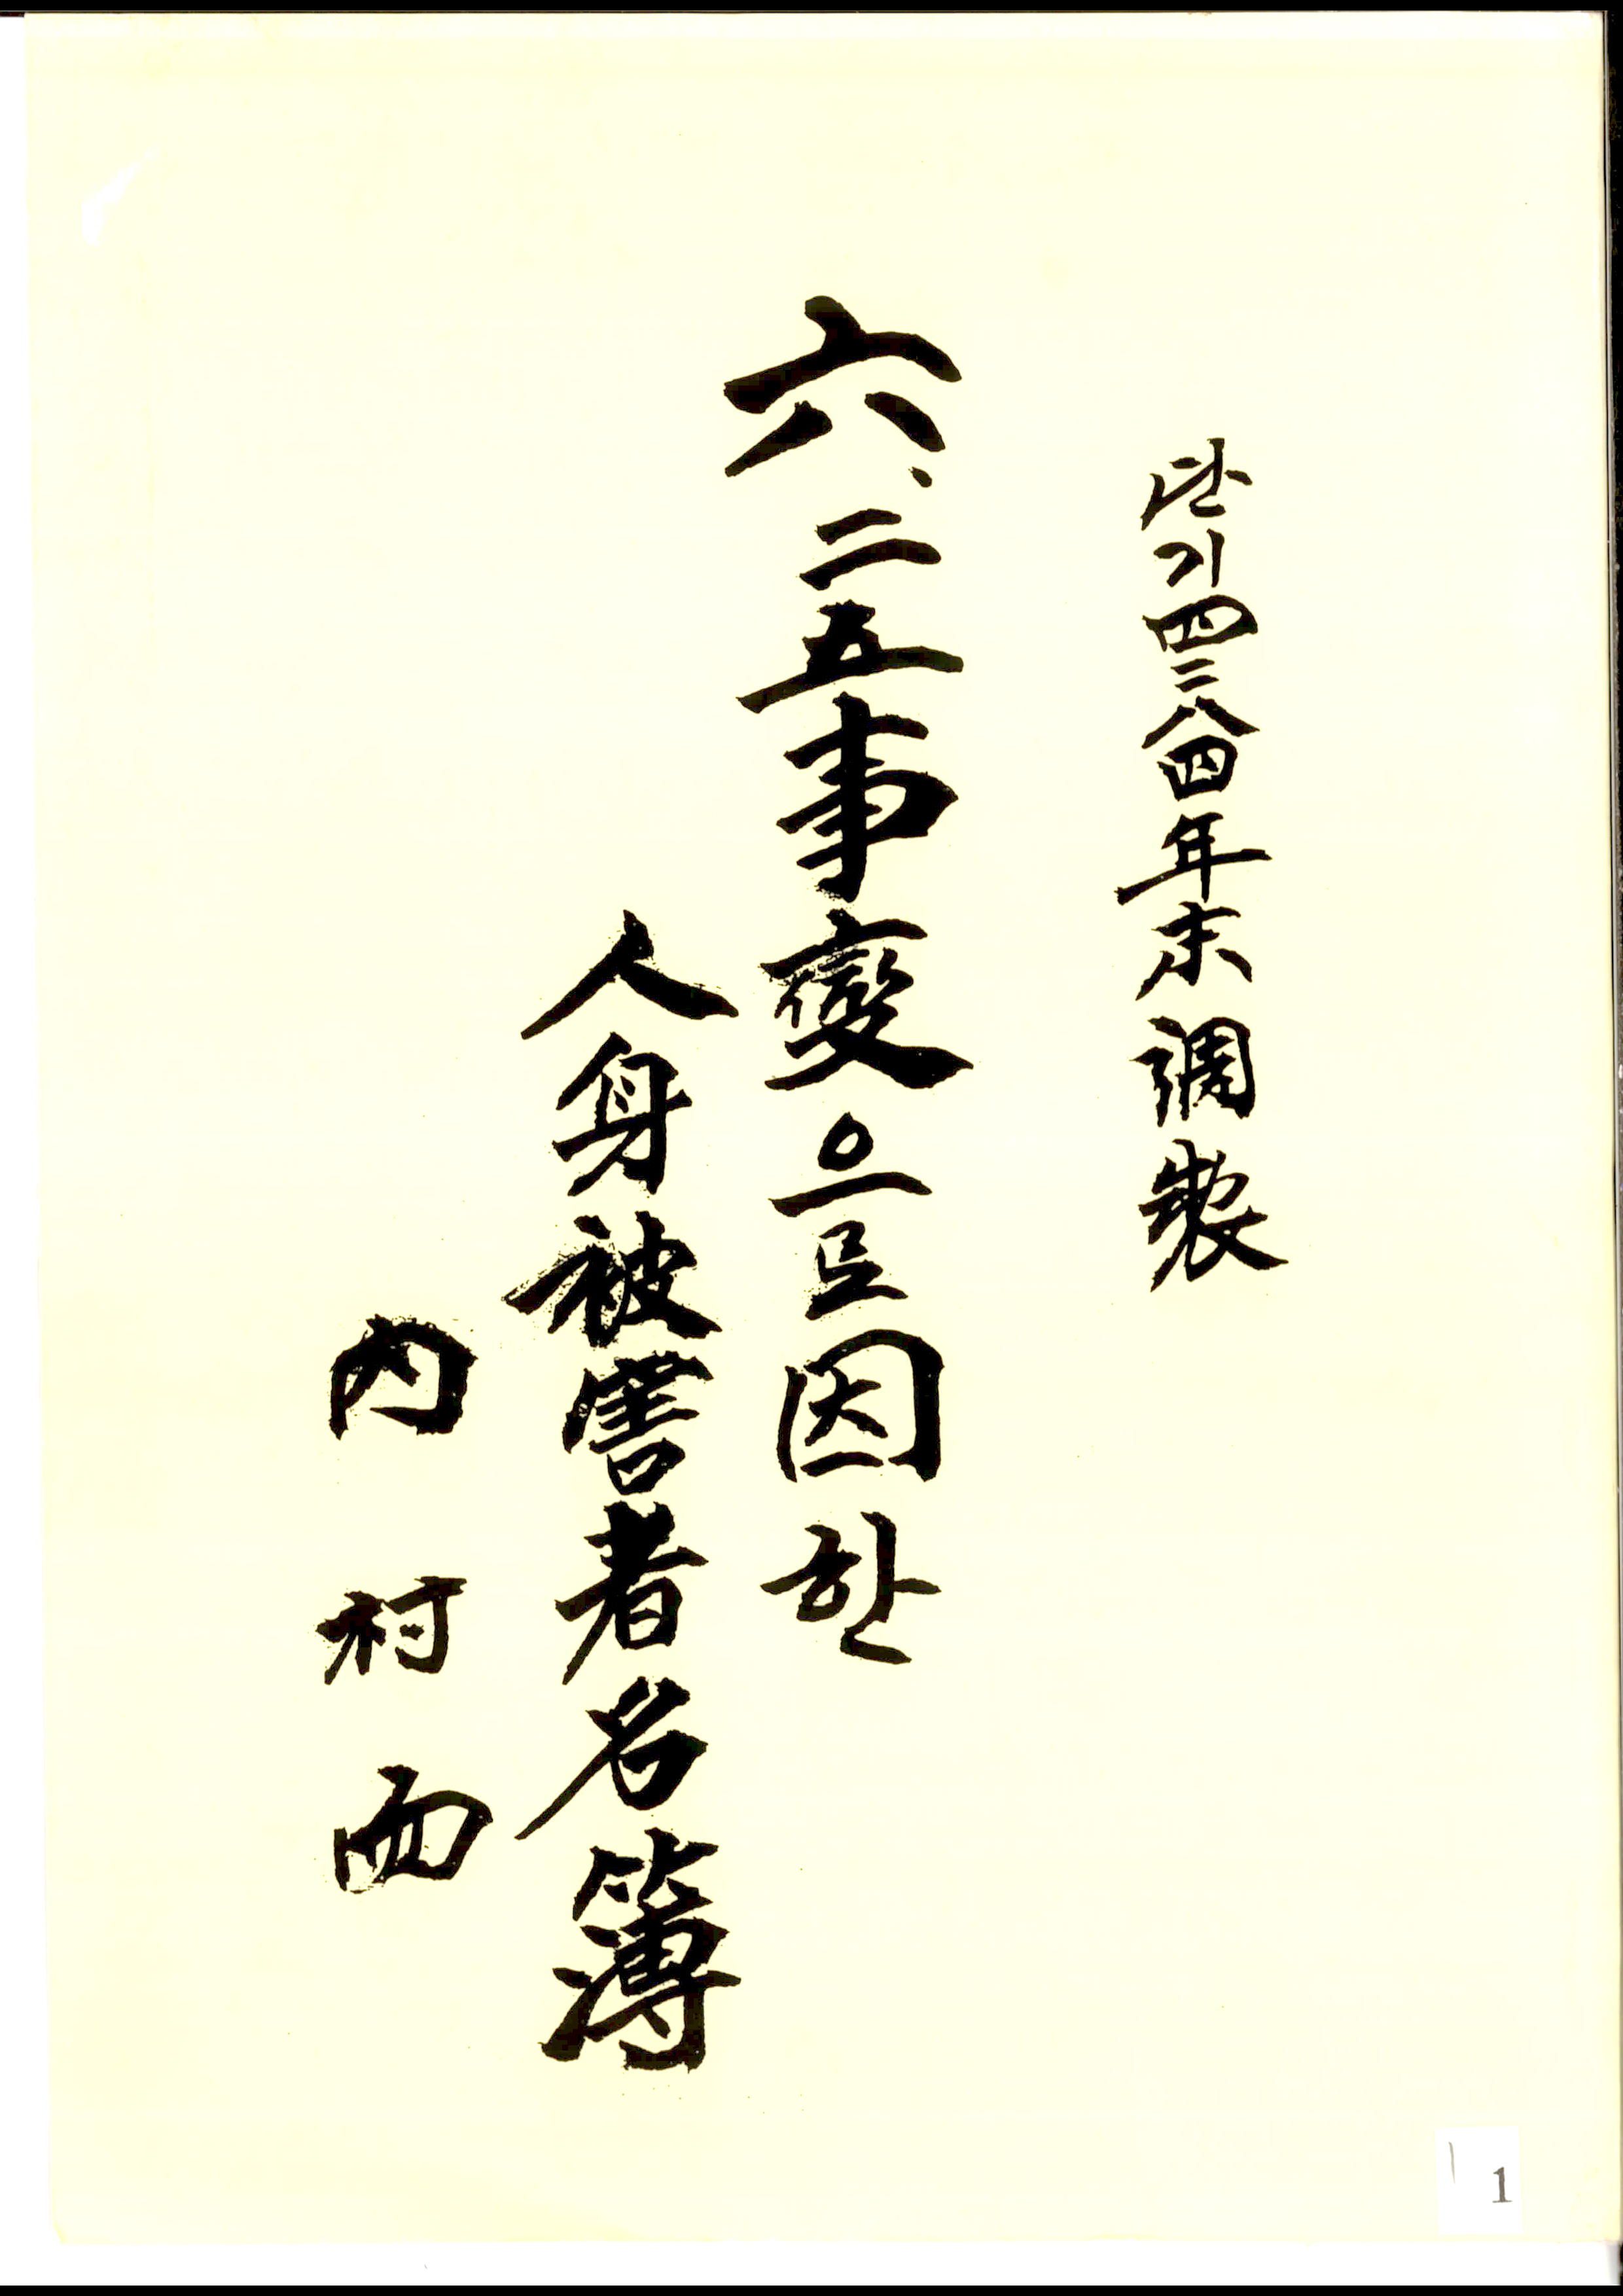 단기四二八四年末調製
六、二五事變으로因한
人身被害者名簿
內村面
1